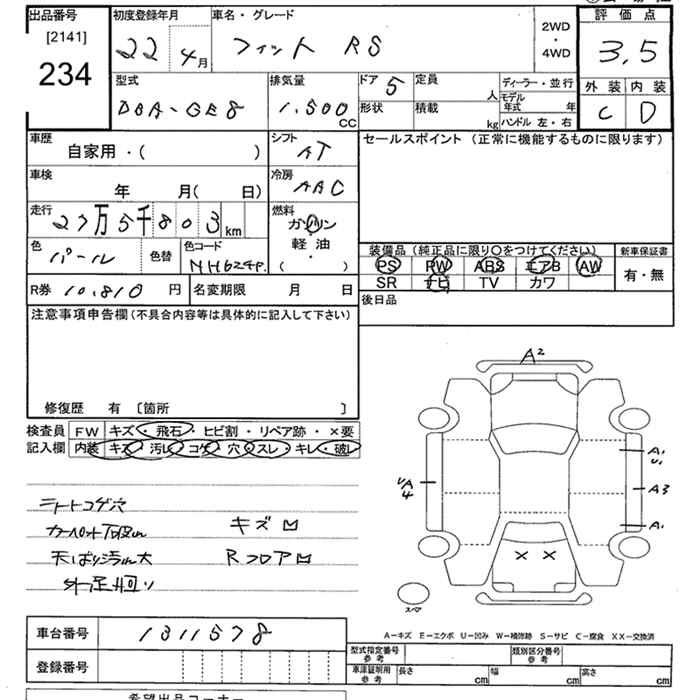 出品番号
[2141]
234
初度登録年月
22 4月
車名・グレード
フィット RS
2WD
・
4WD
評価点
3,5
外装 内装
C D
型式
DBA-GE8
排気量
1,500 CC
ドア 5
形状
定員 人
積載 kg
ディーラー・並行
モデル年式 年
ハンドル 左・右
車歴
自家用・( )
シフト
AT
セールスポイント (正常に機能するものに限ります)
車検
年 月( 日)
冷房
AAC
走行
27万5千803km
燃料
ガソリン
軽油
( ・ )
色
パール
色替
色コード
NH624P.
装備品 (純正品に限り〇をつけてください)
PS PW ABS エアB AW
SR ナビ TV カワ
新車保証書
有・無
R券 10,810 円
名変期限 月 日
後日品
注意事項申告欄(不具合内容等は具体的に記入して下さい)
修復歴 有 〔箇所 〕
検査員 FW キズ・飛石・ヒビ割・リペア跡・×要
記入欄 内装 キズ・汚レ・コゲ・穴・スレ・キレ・破レ
シートコゲ穴
カーペット下破れ
キズ
天ばり汚れ大
Rフロア
外足廻り
A2
A1
U1
UA
4
A3
A1
× ×
スペア
A-キズ E-エクボ U-凹み W-補修跡 S-サビ C-腐食 XX-交換済
車台番号 1311578
登録番号
型式指定番号 参考
類別区分番号 参考
車庫証明用 参考 長さ cm 幅 cm 高さ cm
希望出品コーナー